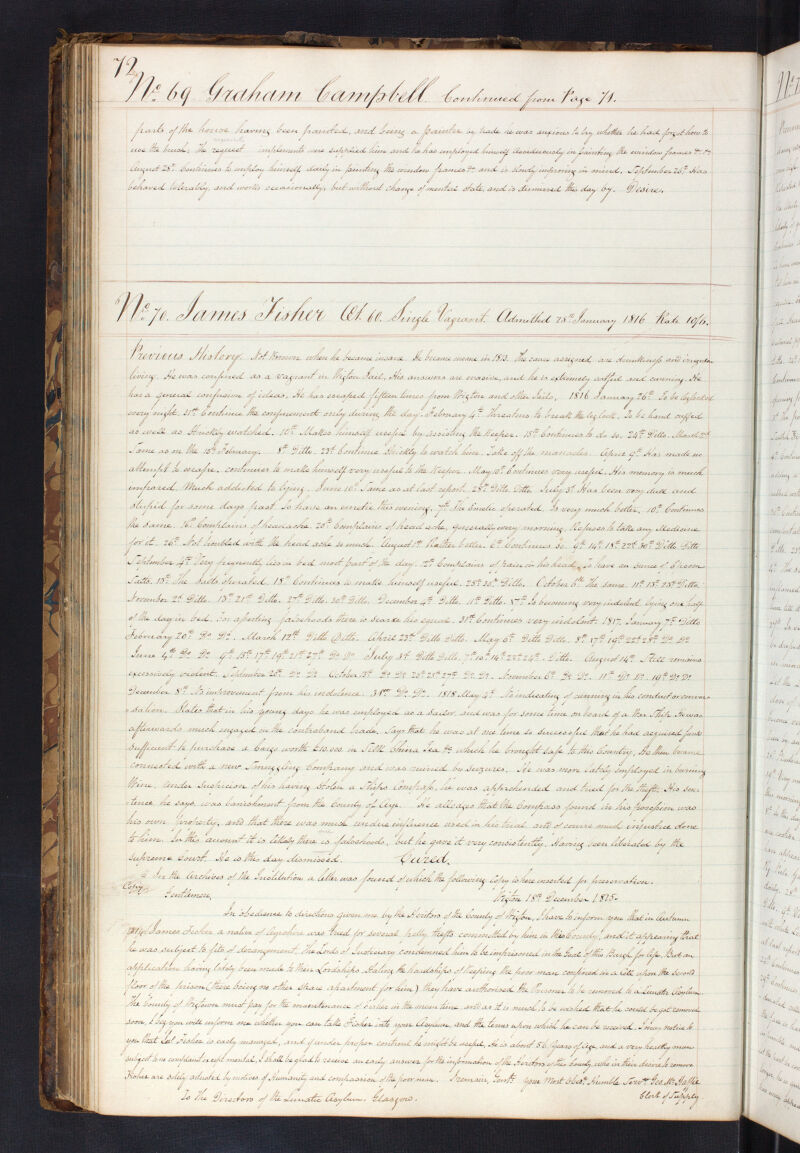 72
No. 69 Graham Campbell. Continued from Page 71.
parts of the house having been painted, and being a painter by trade he was anxious to try whether he had forgot how to
use the brush, The request implements were supplied him and he has employed himself assiduously in painting the window frames &c &c
August 28th Continues to employ himself daily in painting the window frames &c and is slowly improving in mind. September 26th Has
behaved tolerably and works occasionally, but without change of mental state, and is dismissed this day by Desire.
No. 70. James Fisher Æt. 60. Single Vagrant. Admitted 25th January 1816 Rate 10/6.
Previous History. Not known when he became insane. He became insane in 1813. The causes assigned are drunkenness and irregular
living. He was confined as a vagrant in Wigton Jail. His answers are evasive, and he is extremely artful and cunning. He
has a general confusion of ideas. He has escaped fifteen times from Wigton and other Jails. 1816 January 26th To be leglocked
every night. 31st Continue the confinement only during the day. February 4th Threatens to break the leglock. To be hand cuffed
as well as strictly watched. 10th Makes himself useful by assisting the Keeper. 15th Continues to do so. 24th Ditto. March 2nd
Same as on the 15th February. 8th Ditto. 23rd Continue strictly to watch him. Take off the manacles. April 9th Has made no
attempt to escape. continues to make himself very useful to the Keeper. May 10th Continues very useful. His memory is much
impaired. Much addicted to lying. June 10th Same as at last report. 28th Ditto Ditto. July 5th Has been very dull and
stupid for some days past. To have an emetic this evening. 7th The Emetic operated. Is very much better. 10th Continues
the same. 16th Complains of headache. 20th Complains of head ache, generally every morning. Refuses to take any Medicine
for it. 26th Not troubled with the head ache so much. August 1st Rather better. 6th Continues so. 9th 14th 18th 22nd 30th Ditto Ditto
September 4th Very frequently lies in bed most part of the day. 7th Complains of pain in his head, to have an ounce of Epsom
Salts. 13th The Salts operated. 18th Continues to make himself useful. 25th 30th Ditto. October 6th The same. 11th 18th 25th Ditto.
November 2nd Ditto. 13th 21st Ditto. 27th Ditto. 30th Ditto. December 4th Ditto. 11th Ditto. 17th Is becoming very indolent lying one half
of the day in bed. For asserting falsehoods there is scarce his equal. 31st Continues very indolent. 1817. January 7th Ditto
February 20th Do Do. March 12th Ditto Ditto. April 23rd Ditto Ditto. May 6th Ditto Ditto. 8th 17th 19th 22nd 28th Do Do
June 4th Do Do 9th 13th 17th 19th 21st 27th Do Do July 3rd Ditto Ditto. 7th 10th 14th 22nd 24th Ditto. August 14th Still remains
excessively indolent. September 26th Do Do October 13th Do Do 20th 25th 27th Do Do. November 6th Do Do. 11th Do Do. 19th Do Do
December 8th No improvement from his indolence. 31st Do Do. 1818 May 4th No indication of cunning in his conduct or conver-
sation. States that in his young days he was employed as a Sailor and was for some time on board of a War Ship. He was
afterwards much engaged in the contraband trade. Says that he was at one time so successful that he had acquired funds
sufficient to purchase a Cargo worth £10,000 in Silk China Tea &c which he brought safe to this Country, He then became
connected with a new Smuggling Company and was ruined by seizures. He was more lately employed in burning
Wine. Under Suspicion of his having stolen a Ship's Compass, he was apprehended and tried for the theft. His sen-
tence he says, was banishment from the County of Ayr. He alledges that the Compass found in his possession was
his own property, and that there was much undue influence used in his trial and of course much injustice done
to him. In this account it is likely there is falsehoods, but he gave it very consistently. Having been liberated by the
Supreme Court. He is this day dismissed. Cured.
In the Archives of the Institution a letter was found of which the following Copy is here inserted for preservation.
Copy
Gentlemen,
Wigton 18th December 1815.
In obedience to directions given me by the Heritors of the County of Wigton, I have to inform you that in Autumn
1814 James Fisher a native of Ayrshire was tried for several petty thefts committed by him in this County, and it appearing that
he was subject to fits of derangement, The Lords of Justiciary condemned him to be imprisoned in the Jail of this Burgh for life. But an
application having lately been made to their Lordships stating the hardships of keeping the poor man confined in a Cell upon the second
floor of the prison (there being no other spare apartment for him) they have authorised the Prisoner to be removed to a Lunatic Asylum.
The County of Wigtown must pay for the maintenance of Fisher in the mean time and as it is much to be wished that he could be got removed
soon, I beg you will inform me whether you can take Fisher into your Asylum, and the terms upon which he can be received. I may notice to
you that Jas. Fisher is easily managed, and if under proper controul he might be useful. He is about 56 years of age, and a very healthy man
subject to no complaint except mental. I shall be glad to receive an early answer for the information of the Heritors of the County, who in their desire to remove
Fisher are solely actuated by motives of Humanity and compassion to the poor man. I remain, Gentn. your Most Obdt. Humble Servt. Geo. McHaffie
To the Directors of the Lunatic Asylum. Glasgow.
Clerk of Supply.